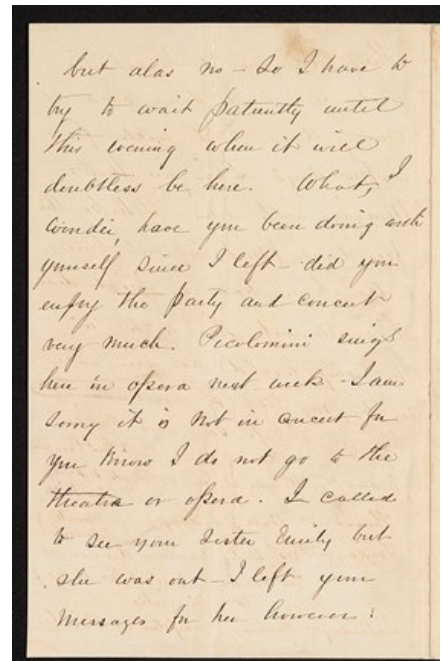 but alas no – So I have to
try to wait patiently until
this evening when it will
doubtless be here. What, I
wonder, have you been doing with
yourself since I left – did you
enjoy the party and concert
very much. Picolomini sings
here in opera next week – I am
sorry it is not in concert for
you know I do not go to the
theatre or opera. I called
to see your sister Emily but
she was out – I left your
messages for her however: